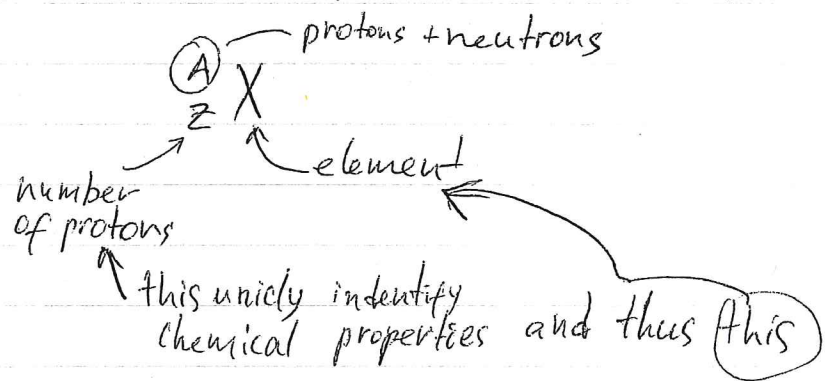 A protons + neutrons
Z X
element
number
of protons
this unicly indentify
chemical properties and thus this